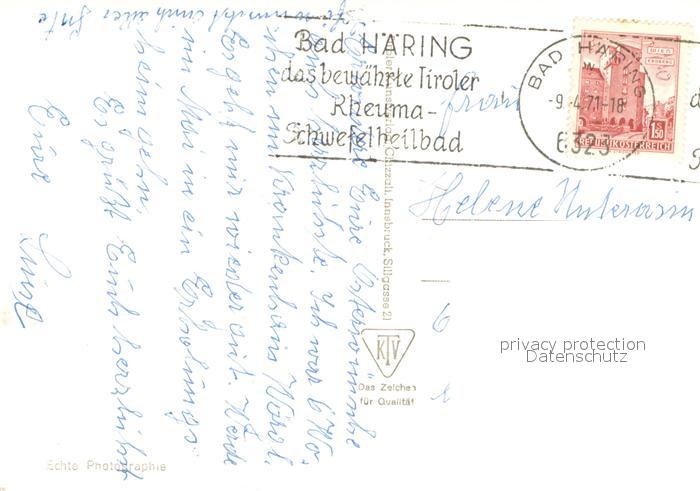 Bad HÄRING
das bewährte Tiroler
Rheuma-
Schwefelheilbad
BAD HÄRING
-9.-4.71-18
6323
WIEN
1.50
REPUBLIK ÖSTERREICH
Frau
Helene Unterrain
Chizzali, Innsbruck, Sillgasse 21
KTV
Das Zeichen
für Qualität
privacy protection
Datenschutz
Echte Photographie
Eure Osterwünsche
herzlichst. Ich war 6 Wo-
chen im Krankenhaus Wörgl.
Es geht mir wieder gut. Werde
im Mai in ein Erholungs-
heim gehn.
Es grüßt Euch herzlichst
Eure
Luise